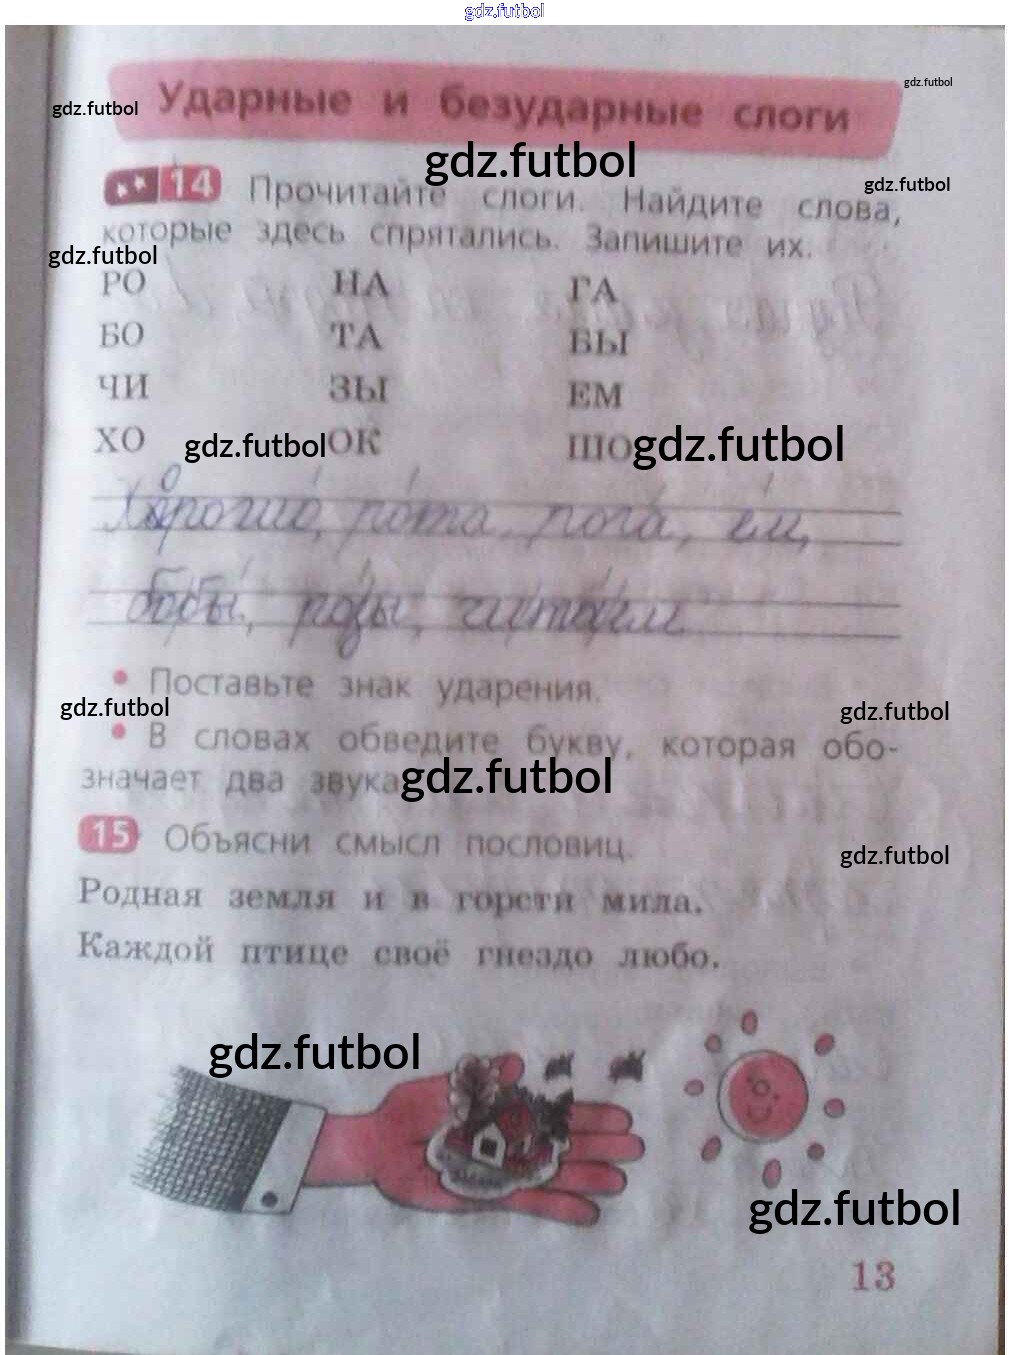 gdz.futbol
Ударные и безударные слоги
gdz.futbol
gdz.futbol
gdz.futbol
gdz.futbol
14 Прочитайте слоги. Найдите слова,
которые здесь спрятались. Запишите их.
gdz.futbol
РО НА ГА
БО ТА БЫ
ЧИ ЗЫ ЕМ
ХО ОК ШО
gdz.futbol
gdz.futbol
Хорошо, рота, рога, ем,
бобы, розы, читаем.
• Поставьте знак ударения.
gdz.futbol
gdz.futbol
• В словах обведите букву, которая обо-
значает два звука
gdz.futbol
15 Объясни смысл пословиц.
gdz.futbol
Родная земля и в горсти мила.
Каждой птице своё гнездо любо.
gdz.futbol
gdz.futbol
13